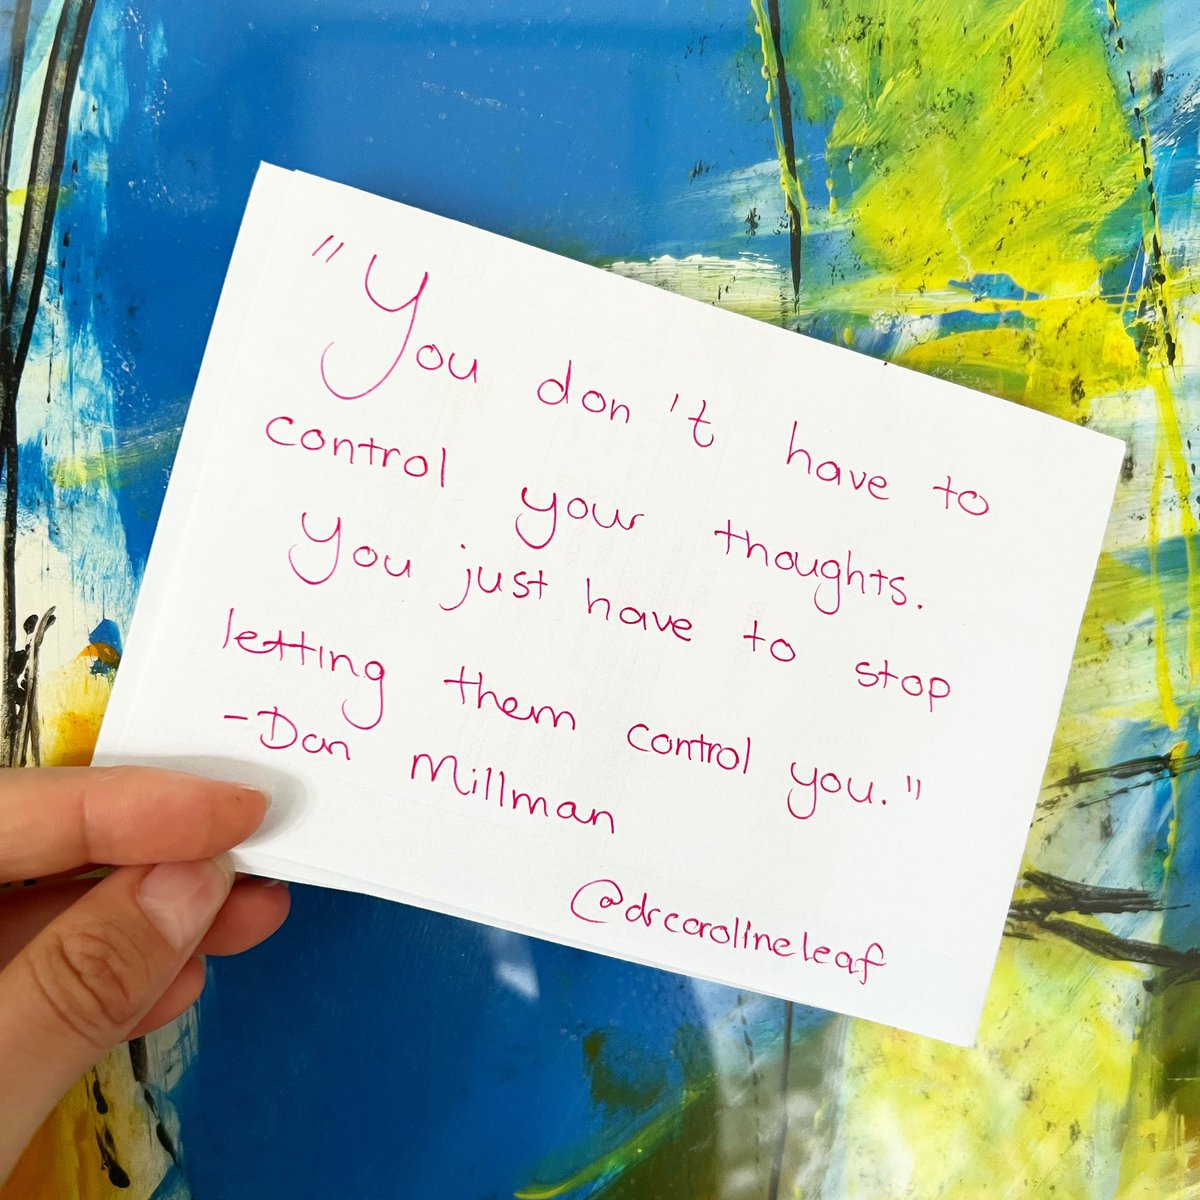 "You don't have to
control your thoughts.
You just have to stop
letting them control you."
-Dan Millman
@drcarolineleaf